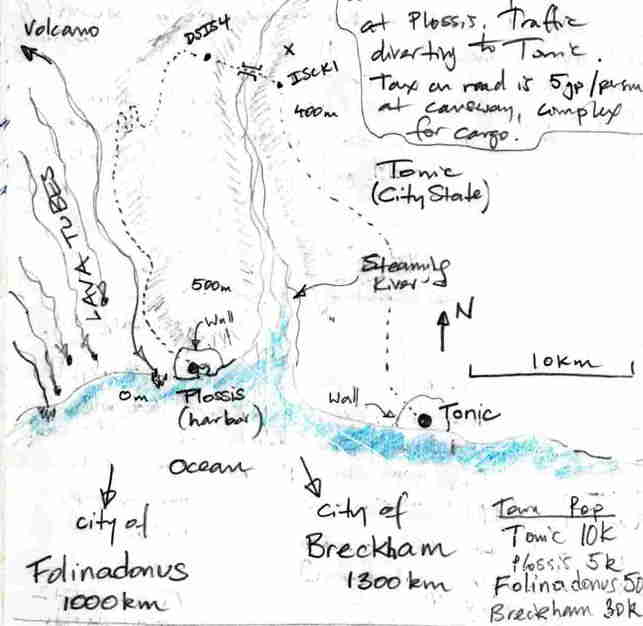 Volcano
DSIS4
X
ISCK1
400m
at Plossis. Traffic
diverting to Tonic.
Tax on road is 5gp/person
at causeway, complex
for cargo.
Tonic
(City State)
LAVA TUBES
Steaming
River
500m
Wall
N
10Km
0m
Plossis
(harbor)
Wall
Tonic
Ocean
city of
Folinadonus
1000km
City of
Breckham
1300km
Town Pop
Tonic 10k
Plossis 5k
Folinadonus 50
Breckham 30k